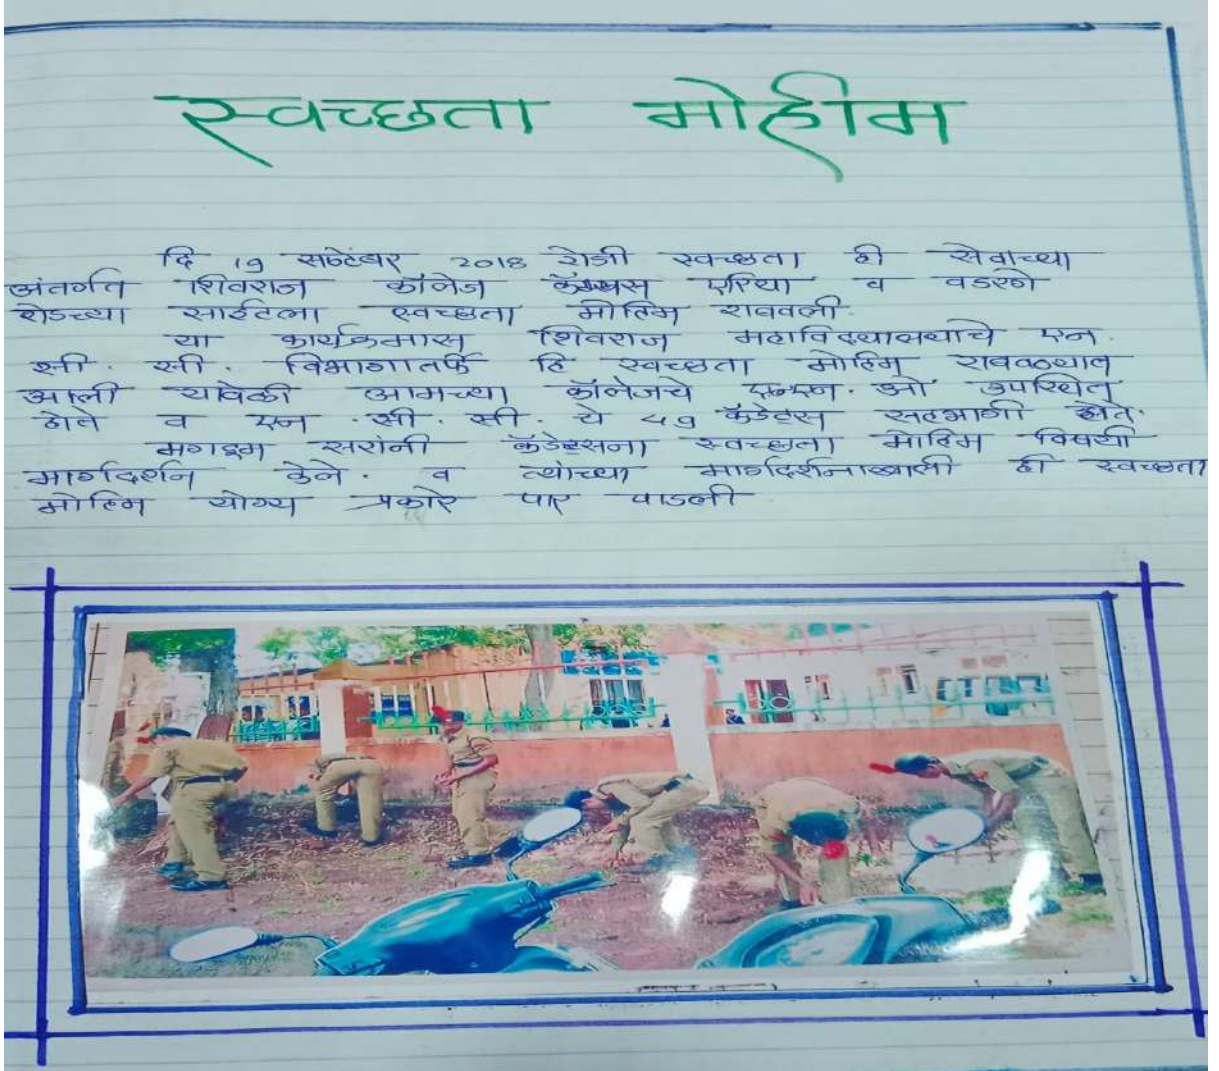 स्वच्छता मोहीम
दि 19 सप्टेंबर 2018 रोजी स्वच्छता ही सेवाच्या
अंतर्गत शिवराज कॉलेज कॅम्पस एरिया व वडरगे
रोडच्या साईटला स्वच्छता मोहिम राबवली.
या कार्यक्रमास शिवराज महाविद्यालयाचे एन.
सी. सी. विभागातर्फे हि स्वच्छता मोहिम रावळ्यात
आली यावेळी आमच्या कॉलेजचे एन. ओ उपस्थित
होते व एन. सी. सी. चे 49 कॅडेट्स सहभागी होते.
मगदूम सरांनी कॅडेट्सना स्वच्छता मोहिम विषयी
मार्गदर्शन केले. व त्यांच्या मार्गदर्शनाखाली ही स्वच्छता
मोहिम योग्य प्रकारे पार पाडली